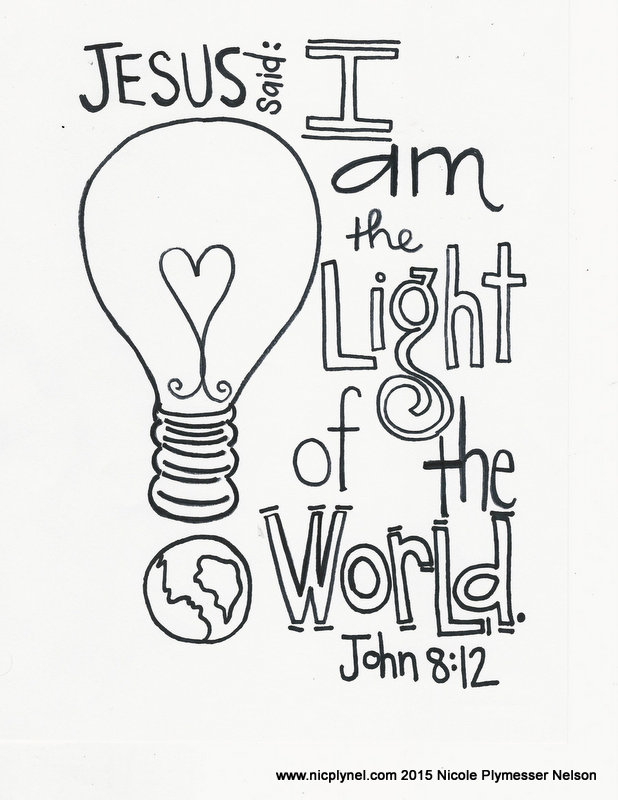 JESUS said:
I
am
the
Light
of the
World.
John 8:12
www.nicplynel.com 2015 Nicole Plymesser Nelson